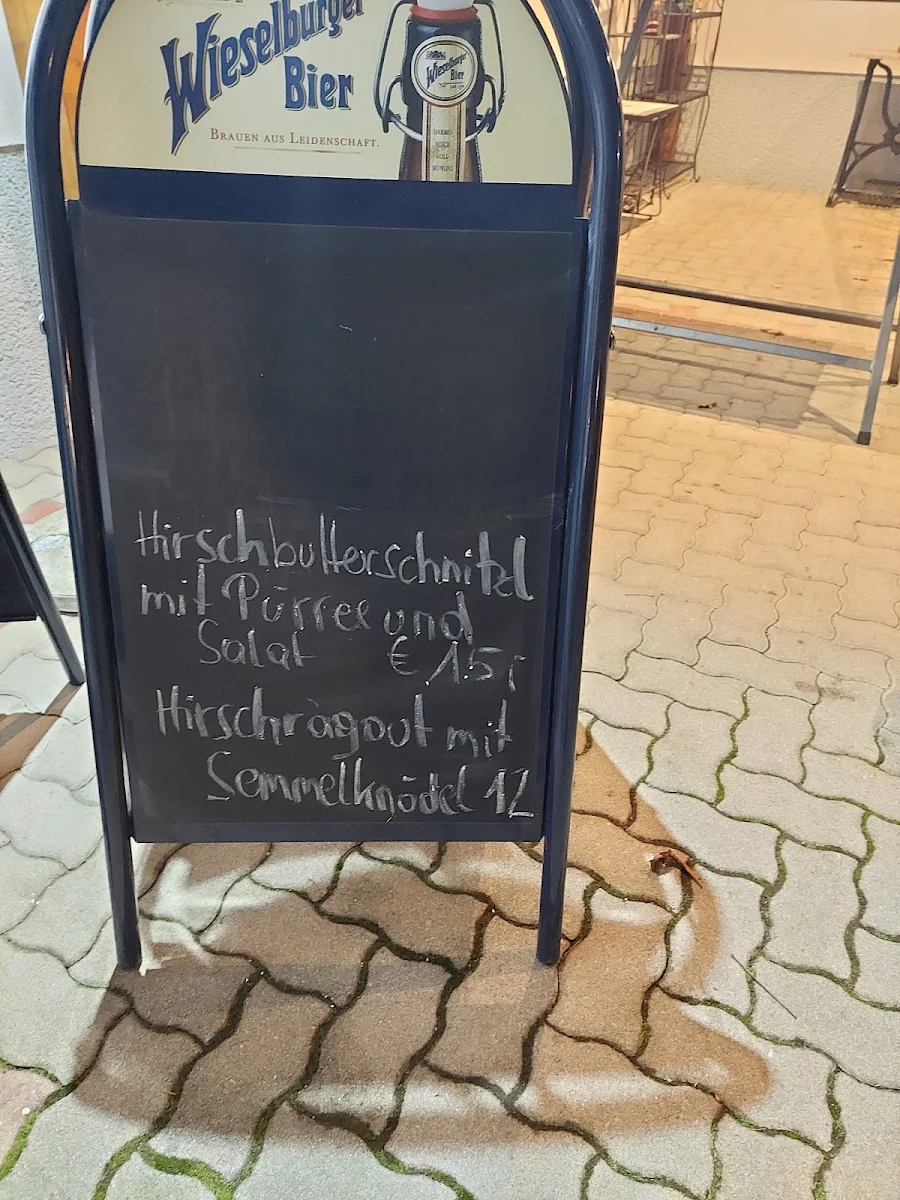 Wieselburger
Bier
BRAUEN AUS LEIDENSCHAFT.
Wieselburger
Bier
HARMO-
NISCH
VOLL-
MUNDIG
Hirschbutterschnitzl
mit Pürree und
Salat € 15,-
Hirschràgout mit
Semmelknödel 12